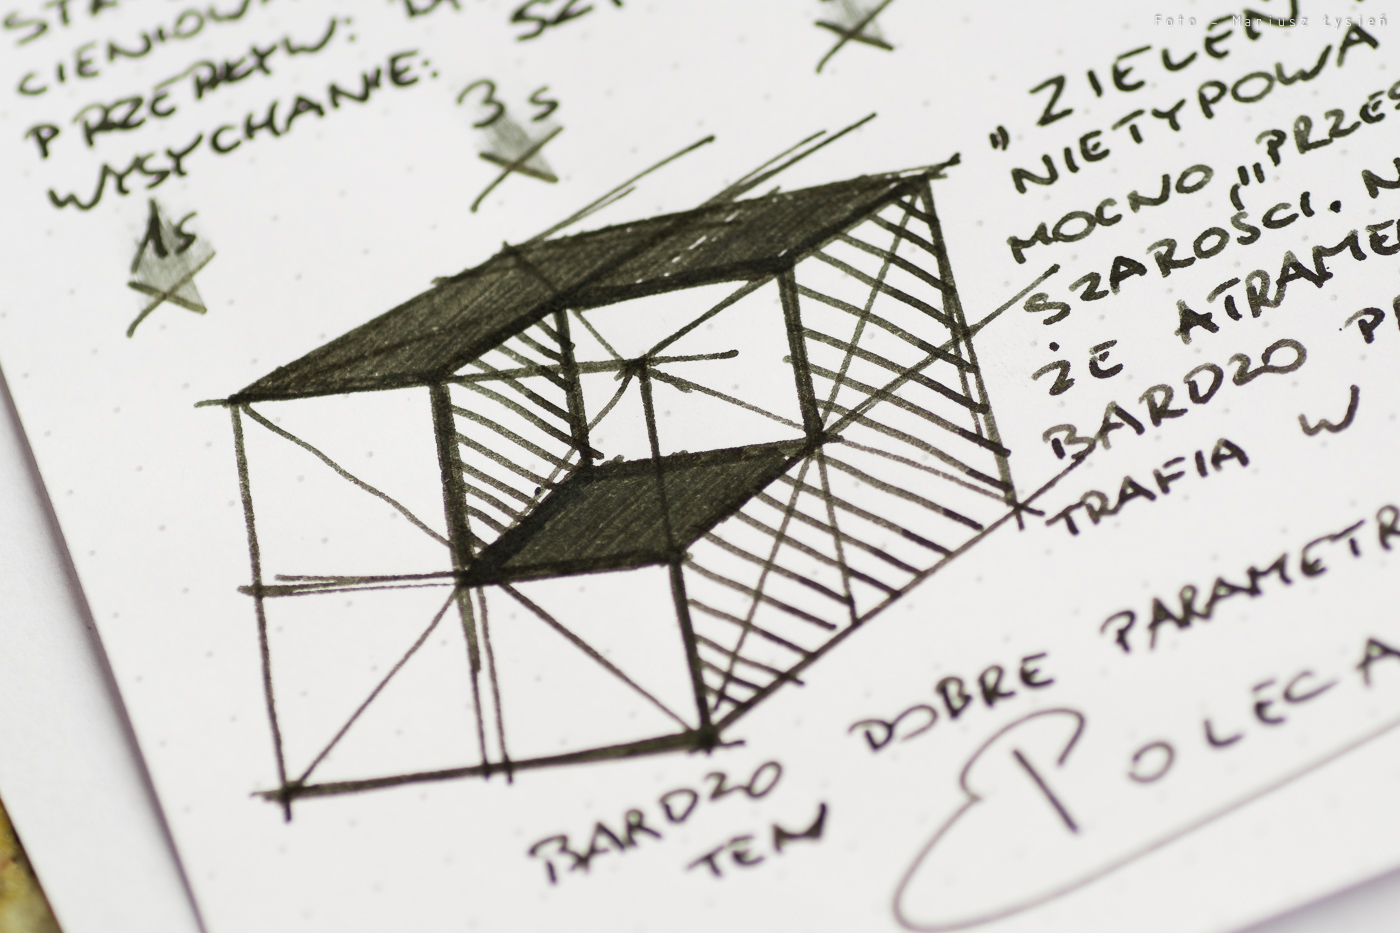 Foto - Mariusz Łysień
CIENIOWA
PRZEPŁYW:
WYSYCHANIE:
1s
3s
"ZIELEŃ
NIETYPOWA
MOCNO "PRZES
SZAROŚCI. N
ŻE ATRAME
BARDZO
TRAFIA W
BARDZO DOBRE PARAMETR
TEN POLECA